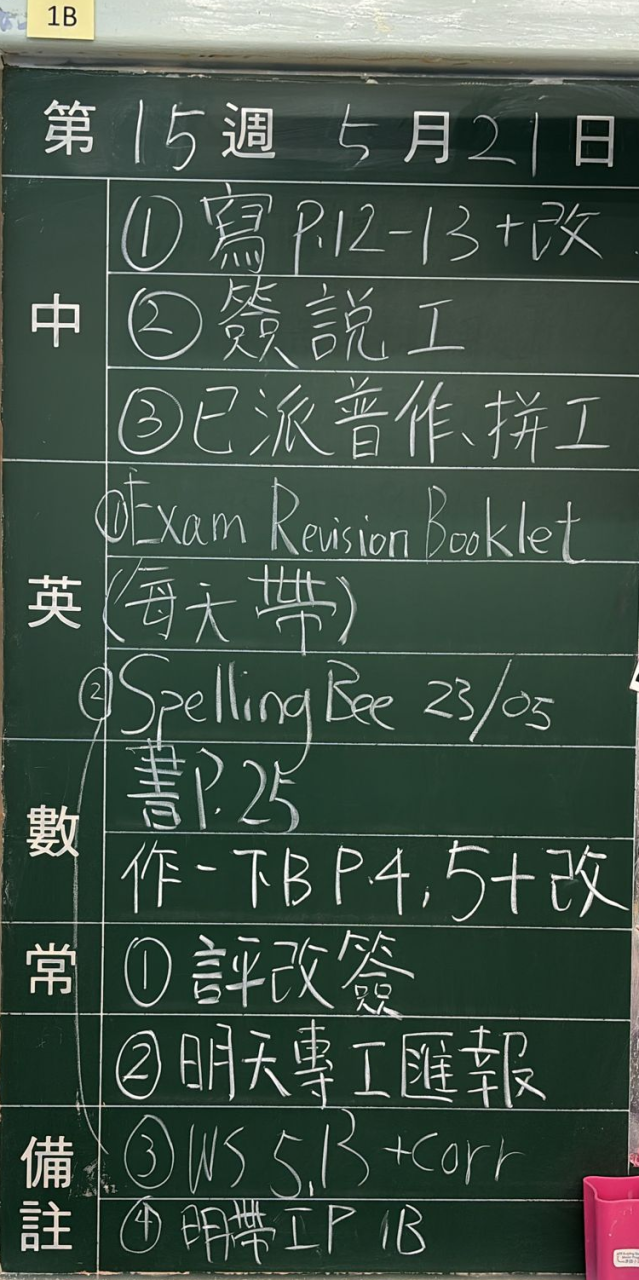 1B
第15週 5月21日
中
①寫P.12-13+改
②簽說工
③已派普作、拼工
英
①Exam Revision Booklet
(每天帶)
②Spelling Bee 23/05
數
書P.25
作一下B P.4, 5+改
常
①評改簽
②明天專工匯報
備註
③WS 5,13 +corr
④明帶IP 1B